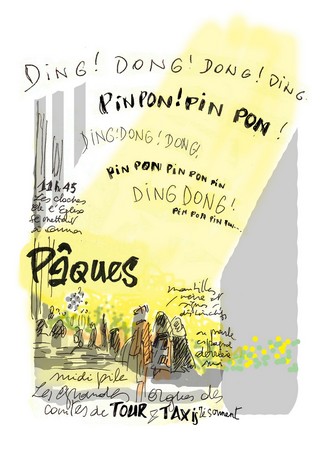 DING! DONG! DONG! DING.
PINPON! PIN PON !
DING! DONG! DONG,
PIN PON PIN PON PIN
DING DONG!.
PIN PON PIN PON...
11h45
Les cloches
de l'Eglise
se mettent
à
Pâques
mantilles
noires et
ou parle
espagnol
derrière
moi
midi pile
Les grandes orgues des
contes de TOUR & TAXIS résonnent